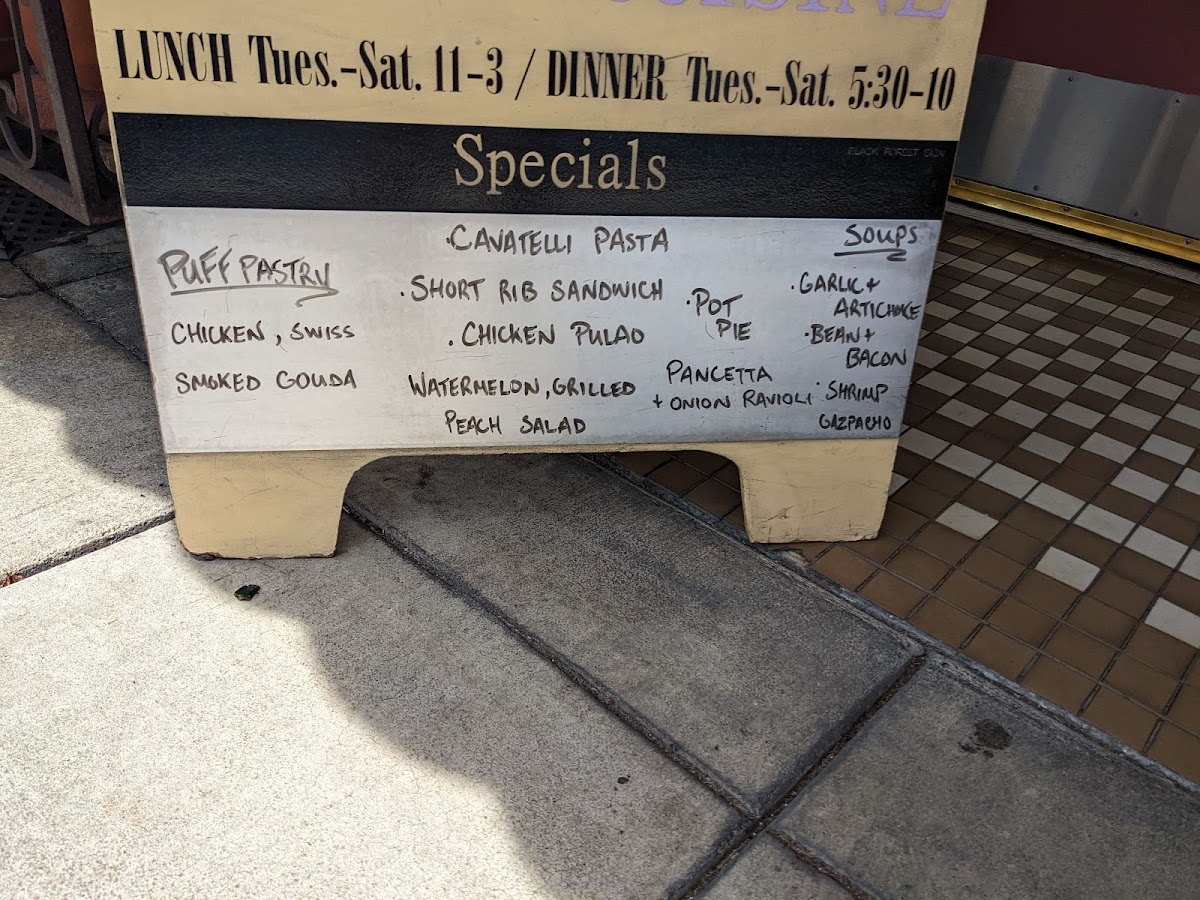 CUISINE
LUNCH Tues.-Sat. 11-3 / DINNER Tues.-Sat. 5:30-10
Specials
BLACK FOREST SIGN
PUFF PASTRY
CHICKEN, SWISS
SMOKED GOUDA
·CAVATELLI PASTA
·SHORT RIB SANDWICH
·CHICKEN PULAO
WATERMELON, GRILLED
PEACH SALAD
·POT
PIE
PANCETTA
+ ONION RAVIOLI
SOUPS
·GARLIC +
ARTICHOKE
·BEAN +
BACON
·SHRIMP
GAZPACHO